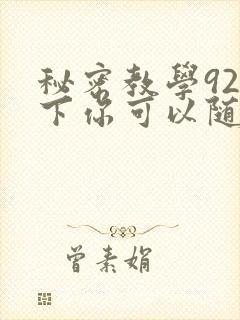 秘密教學92
下你可以随
曾素娟